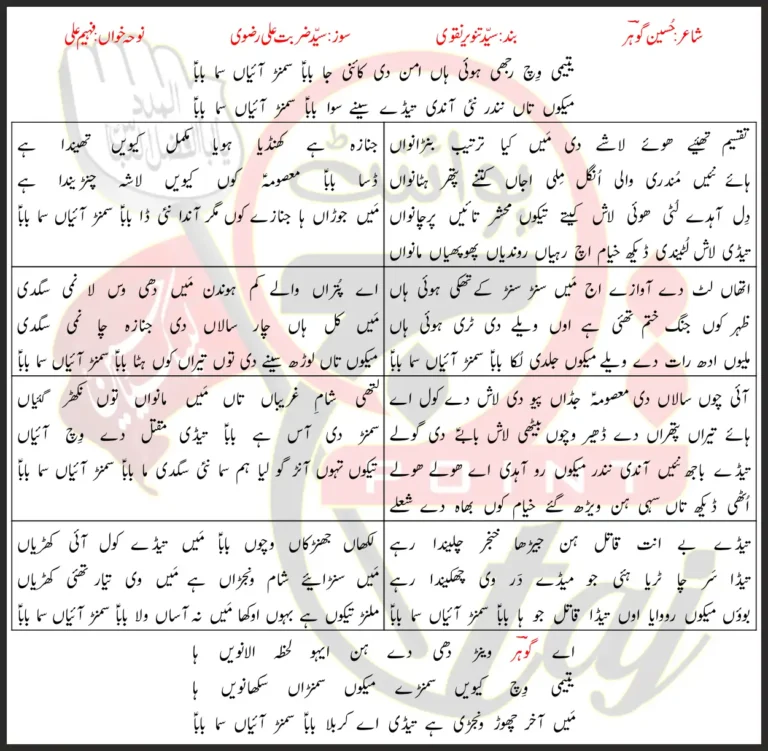 شاعر: حُسین گوہرؔ بند: سیّد تنویر نقوی سوز: سیّد ضربت علی رضوی نوحہ خواں: فہیم علی
یتیمی وِچ رجھی ہوئی ہاں امن دی کائنی جا باباؑ سمنڑ آئیاں سما باباؑ
میکوں تاں نندر نئی آندی تیڈے سینے سوا باباؑ سمنڑ آئیاں سما باباؑ
تقسیم تھیئے ھوئے لاشے دی مَیں کیا ترتیب بنڑانواں
ہائے نئیں مُندری والی اُنگل مِلی اجاں کتنے پتھر ہٹانواں
دِل آہدے لُٹی ھوئی لاش کیتے تیکوں محشر تائیں پرچانواں
تیڈی لاش لُٹیندی ڈیکھ خیام اچ رہیاں روندیاں پھوپھیاں مانواں
جنازہ ہے کھنڈیا ہویا مکمل کیویں تھیندا ہے
ڈسا باباؑ معصومہؑ کوں کیویں لاشہ چنڑیندا ہے
مَیں جوڑاں ہا جنازے کوں مگر آندا نئی ڈا باباؑ سمنڑ آئیاں سما باباؑ
اتھاں لٹ دے آوازے اج مَیں سنڑ سنڑ کے تھکی ہوئی ہاں
ظہر کوں جنگ ختم تھئی ہے اوں ویلے دی ٹری ہوئی ہاں
ملیوں ادھ رات دے ویلے میکوں جلدی لُکا باباؑ سمنڑ آئیاں سما باباؑ
اے پُتراں والے کم ہوندن مَیں دھی وس لا نمی سگدی
مَیں کل ہاں چار سالاں دی جنازہ چا نمی سگدی
میکوں تاں لوڑھ سینے دی توں تیراں کوں ہٹا باباؑ سمنڑ آئیاں سما باباؑ
آئی چوں سالاں دی معصومہؑ جڈاں پیو دی لاش دے کول اے
ہائے تیراں پتھراں دے ڈھیر وچوں بیٹھی لاش بابےؑ دی گولے
تیڈے باجھ نئیں آندی نندر میکوں رو آہدی اے ھولے ھولے
اُٹھی ڈیکھ تاں سہی ہن ویڑھ گئے خیام کوں بھاہ دے شعلے
لتھی شامِ غریباں تاں مَیں مانواں توں نکھڑ گئیاں
سمنڑ دی آس ہے باباؑ تیڈی مقتل دے وِچ آئیاں
تیکوں تہوں آنڑ گو لیا ہم سما نئی سگدی ما باباؑ سمنڑ آئیاں سما باباؑ
تیڈے بے انت قاتل ہن جیڑھا خنجر چلیندا رہے
تیڈا سَر چا ٹریا ہئی جو میڈے دَر وی چھکیندا رہے
بوؤں میکوں رووایا اوں تیڈا قاتل جو ہا باباؑ سمنڑ آئیاں سما باباؑ
لکھاں جھنڑکاں وچوں باباؑ مَیں تیڈے کول آئی کھڑیاں
مَیں سنڑائیے شام ونجڑاں ہے مَیں وی تیار تھئی کھڑیاں
ملنڑ تیکوں ہے بہوں اوکھا مَیں نہ آساں ولا باباؑ سمنڑ آئیاں سما باباؑ
اے گوہرؔ وینڑ دھی دے ہن ایہو لحظہ الانویں ہا
یتیمی وِچ کیویں سمنڑے میکوں سمنڑاں سکھانویں ہا
مَیں آخر چھوڑ ونجڑی ہے تیڈی اے کربلا باباؑ سمنڑ آئیاں سما باباؑ
POINT
taj